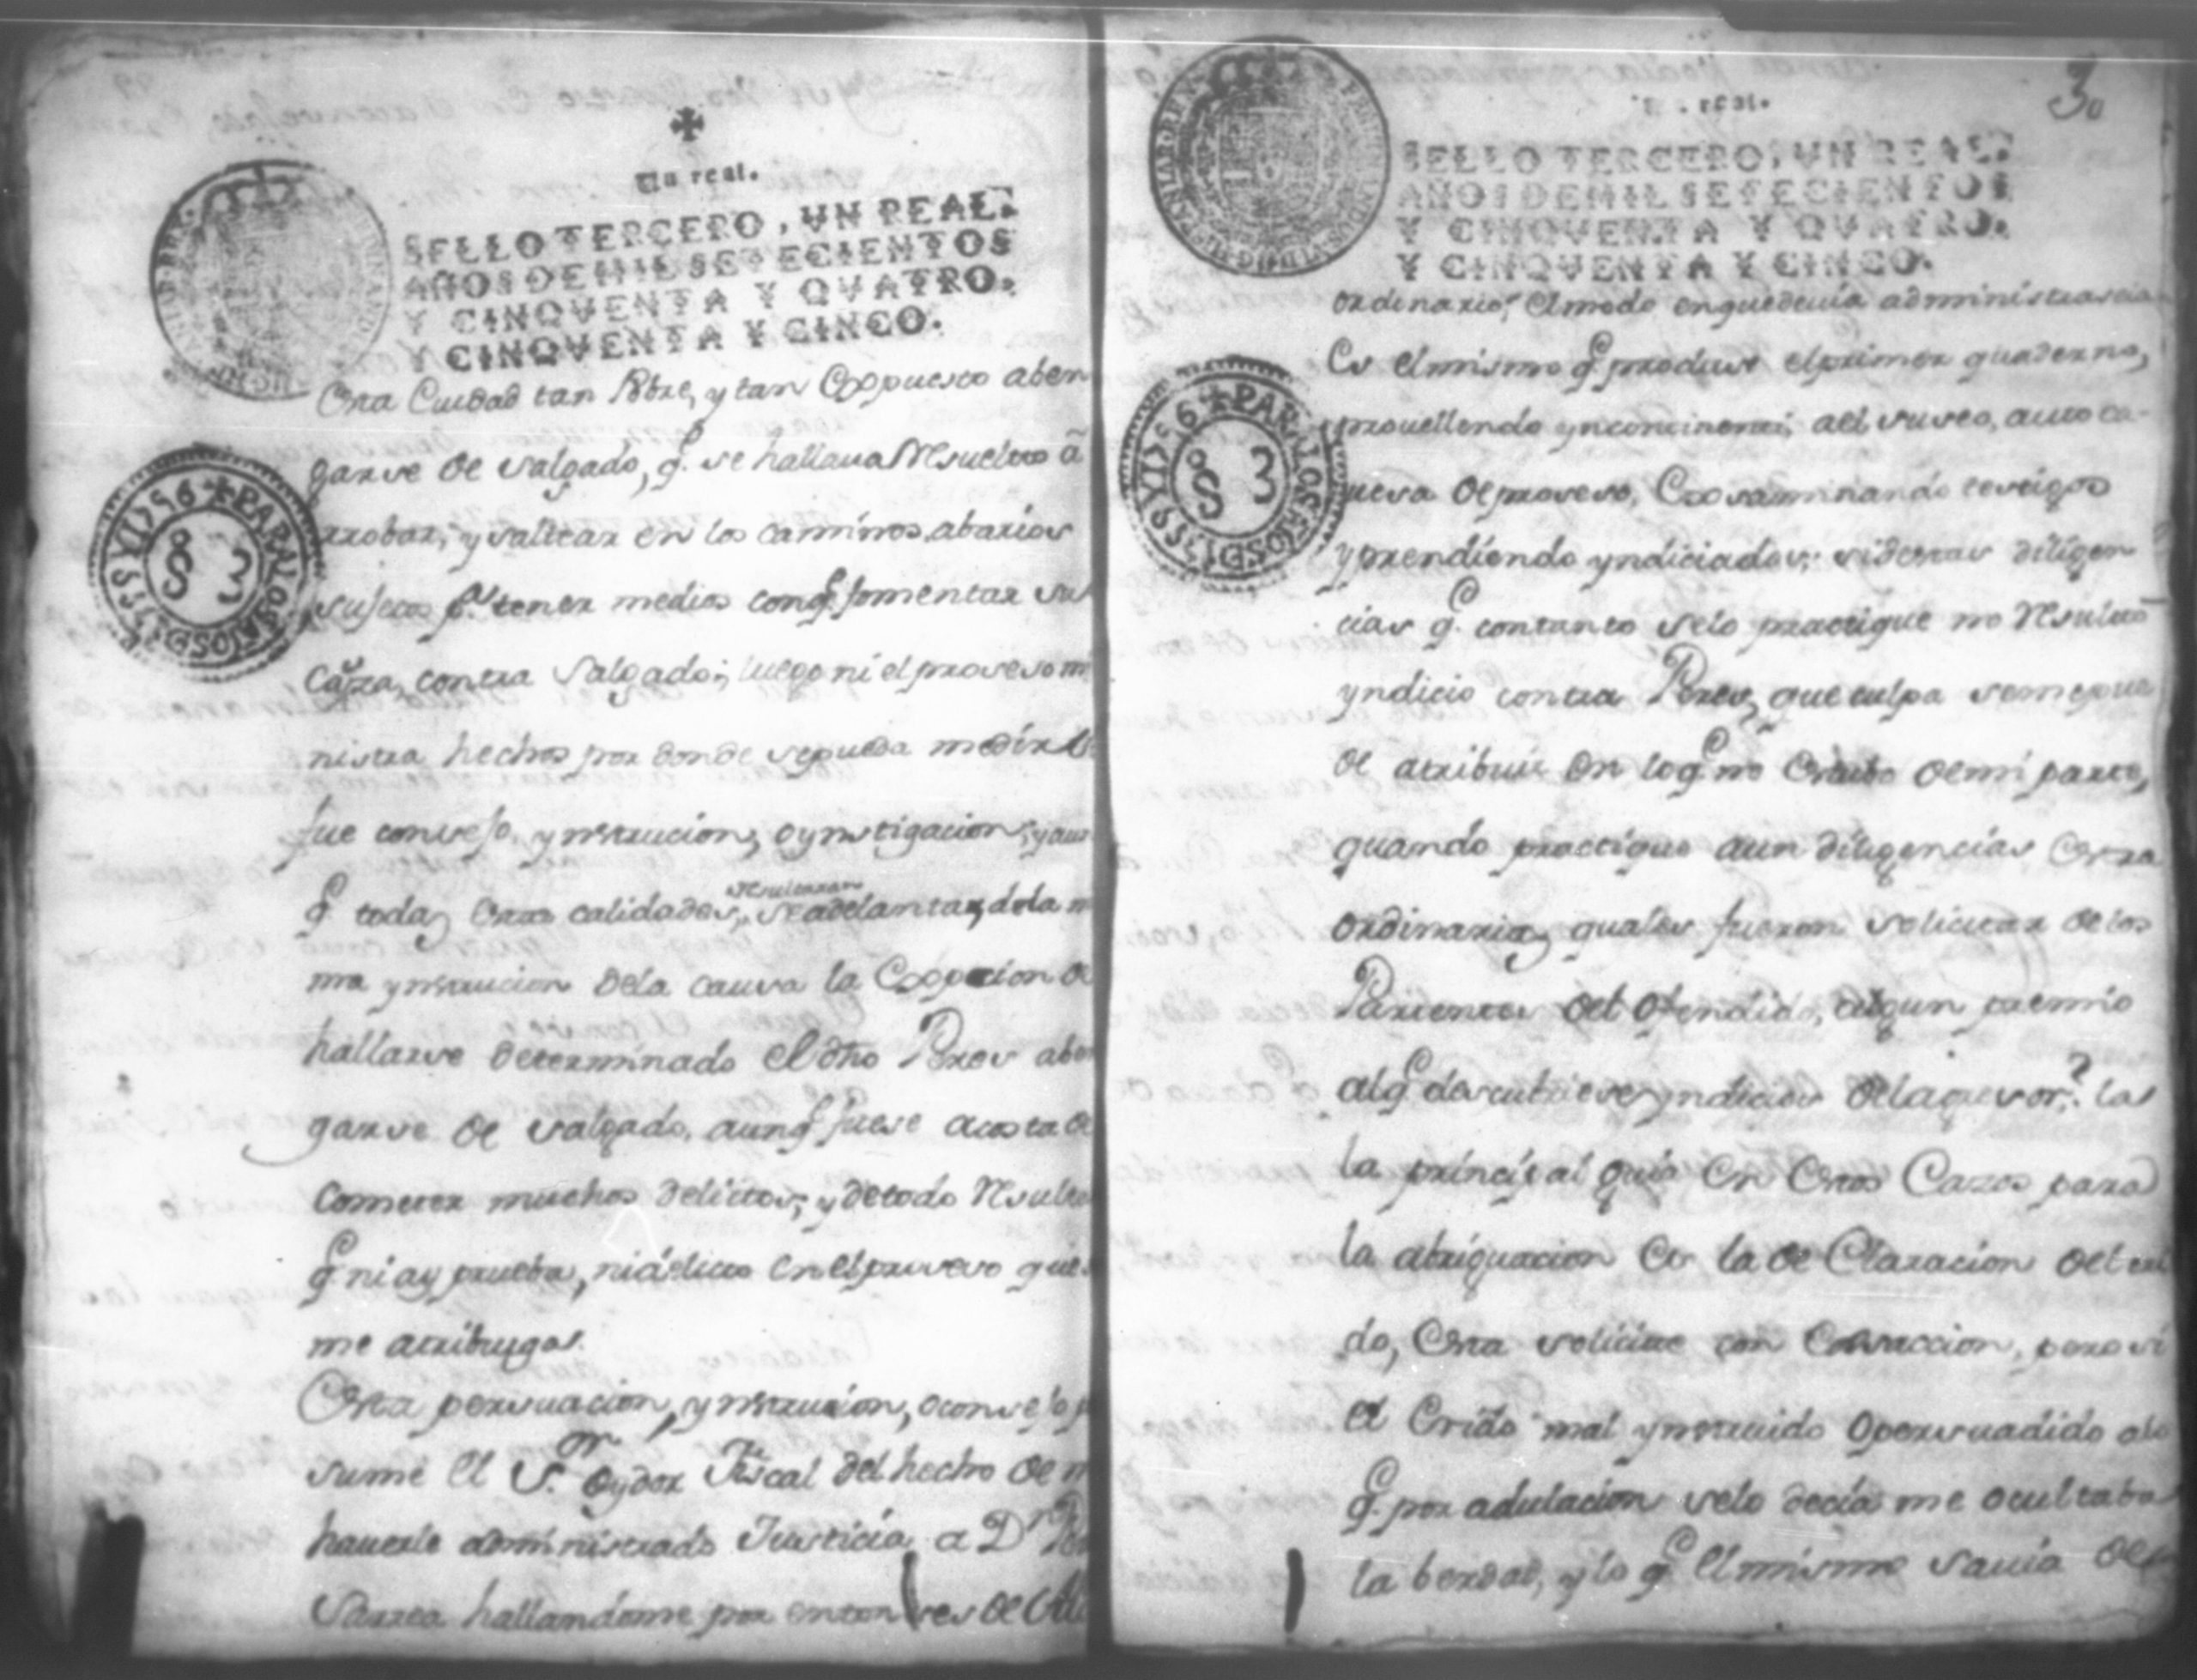 ✠
Un real.
SELLO TERCERO, UN REAL.
AÑOS DE MIL SETECIENTOS
Y CINQVENTA Y QVATRO.
Y CINQVENTA Y CINCO.
PARA LOS AÑOS D 1755 Y 1756
Esta Ciudad tan Pobre, y tan Expuesto aben
garse de salgado, q.e se hallava Resuelto â
rrobar, y saltear en los caminos, abarios
sujetos p.a tener medios conq.e fomentar su
caussa, contra Salgado; luego ni el proseso m
nistra hechos por donde sepueda medir
fue consejo, ynstrucion, o ynstigacion, y aun
q.e todas estas calidades, resultaran
se adelantara dela
ma ynstrucion dela causa la Expecion de
hallarse determinado el dho Peres aben
garse de salgado, aunq.e fuese acosta de
cometer muchos delictos; y detodo Resulta
q.e ni ay prueba, ni delicto en el proseso que
me atribuyas.
Esta persuacion, ynstrucion, o consejo p
sume el S.or oydor Fiscal del hecho de
haverle administrado Justicia a D.n
Sarrea hallandome por entonses de Al
3
Un real.
SELLO TERCERO, UN REAL.
AÑOS DE MIL SETECIENTOS
Y CINQVENTA Y QVATRO.
Y CINQVENTA Y CINCO.
PARA LOS AÑOS D 1755 Y 1756
ordinario; el modo enquedevia administrarcela
es el mismo q.e produse el primer quaderno,
provellendo yncontinenti,ael suseo, auto ca-
vesa de proseso, Exsaminando testigos
y prendiendo yndiciados; si destas diligen
cias q.e contanto selo practique no Resulto
yndicio contra Peres, que culpa semepue
de atribuir en loq.e no estubo demi parte,
quando practique aun diligencias Extra
ordinarias, quales fueron solicitar delos
Parientes del ofendido, algun premio
alq.e descubriese yndicios delagresor? las
la principal guia en estos Casos para
la abriguacion es la de Claracion del eri
do, Esta solicite con Exsaccion, pero si
el Erido mal ynstruido o persuadido alo
q.e por adulacion selo decia me ocultaba
la berdad, y lo q.e el mismo savia de